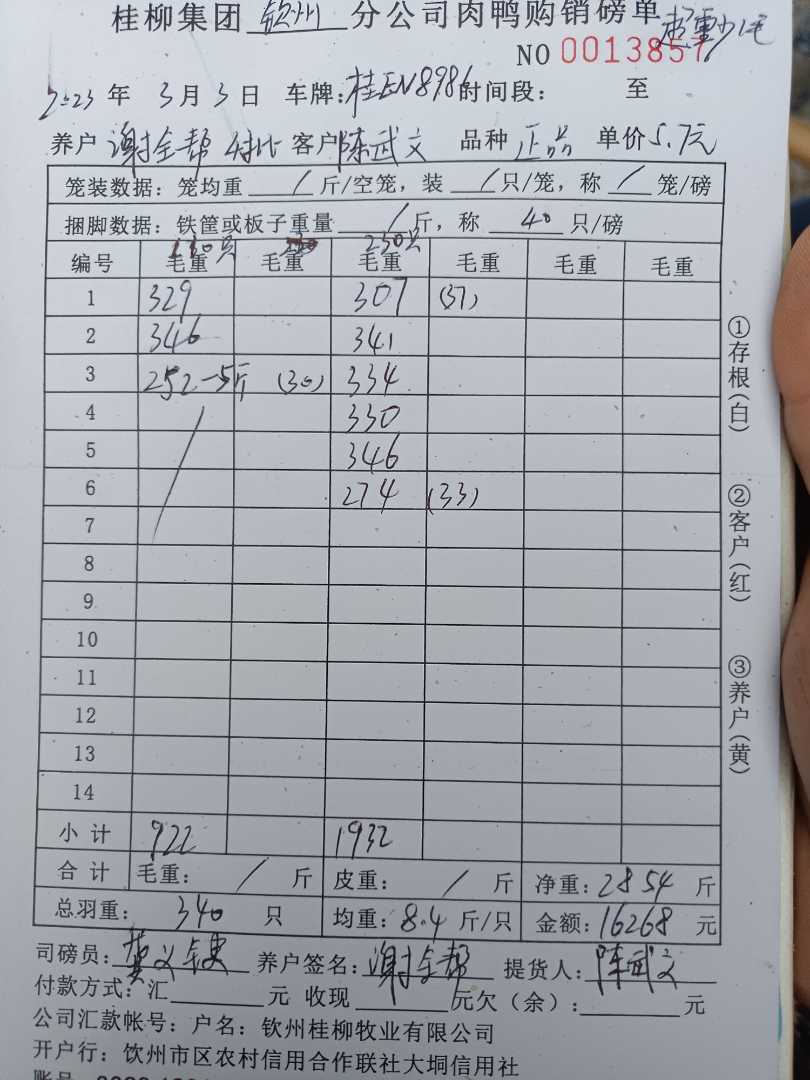 桂柳集团 钦州 分公司肉鸭购销磅单 超重少毛
NO 0013857
2023 年 3 月 3 日 车牌:桂EN8986 时间段: 至
养户 谢全帮 客户 陈武文 品种 正品 单价 5.7元
笼装数据:笼均重 / 斤/空笼,装 / 只/笼,称 / 笼/磅
捆脚数据:铁筐或板子重量 / 斤,称 40 只/磅
110只 230只
编号 毛重 毛重 毛重 毛重 毛重 毛重
1 329 307 (37)
2 346 341
3 252-5斤 (30) 334
4 330
5 346
6 274 (33)
7
8
9
10
11
12
13
14
小计 922 1932
合计 毛重: / 斤 皮重: / 斤 净重:2854 斤
总羽重: 340 只 均重:8.4 斤/只 金额:16268 元
司磅员: 养户签名:谢全帮 提货人:陈武文
付款方式:汇 元 收现 元欠(余): 元
公司汇款帐号:户名:钦州桂柳牧业有限公司
开户行:饮州市区农村信用合作联社大垌信用社
账号
①存根(白)
②客户(红)
③养户(黄)